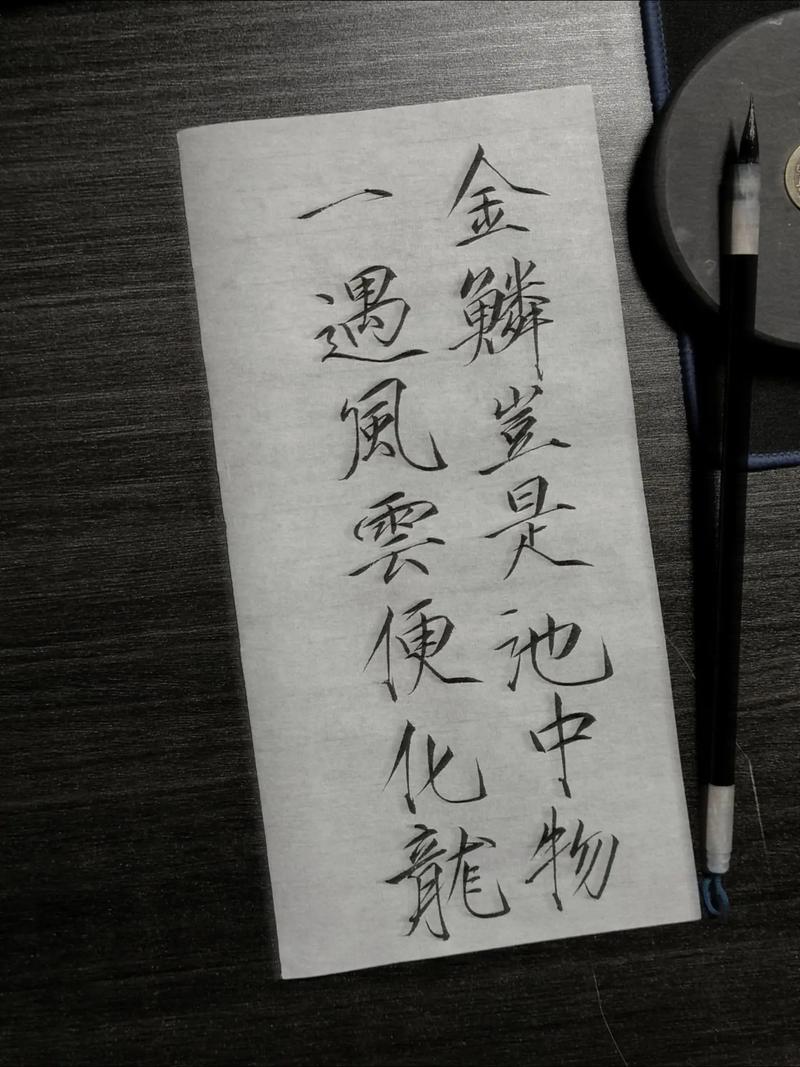 金鱗豈是池中物
一遇風雲便化龍